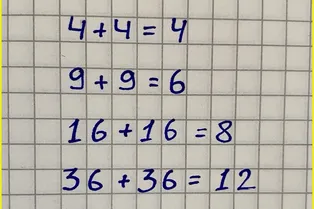 4 + 4 = 4
9 + 9 = 6
16 + 16 = 8
36 + 36 = 12